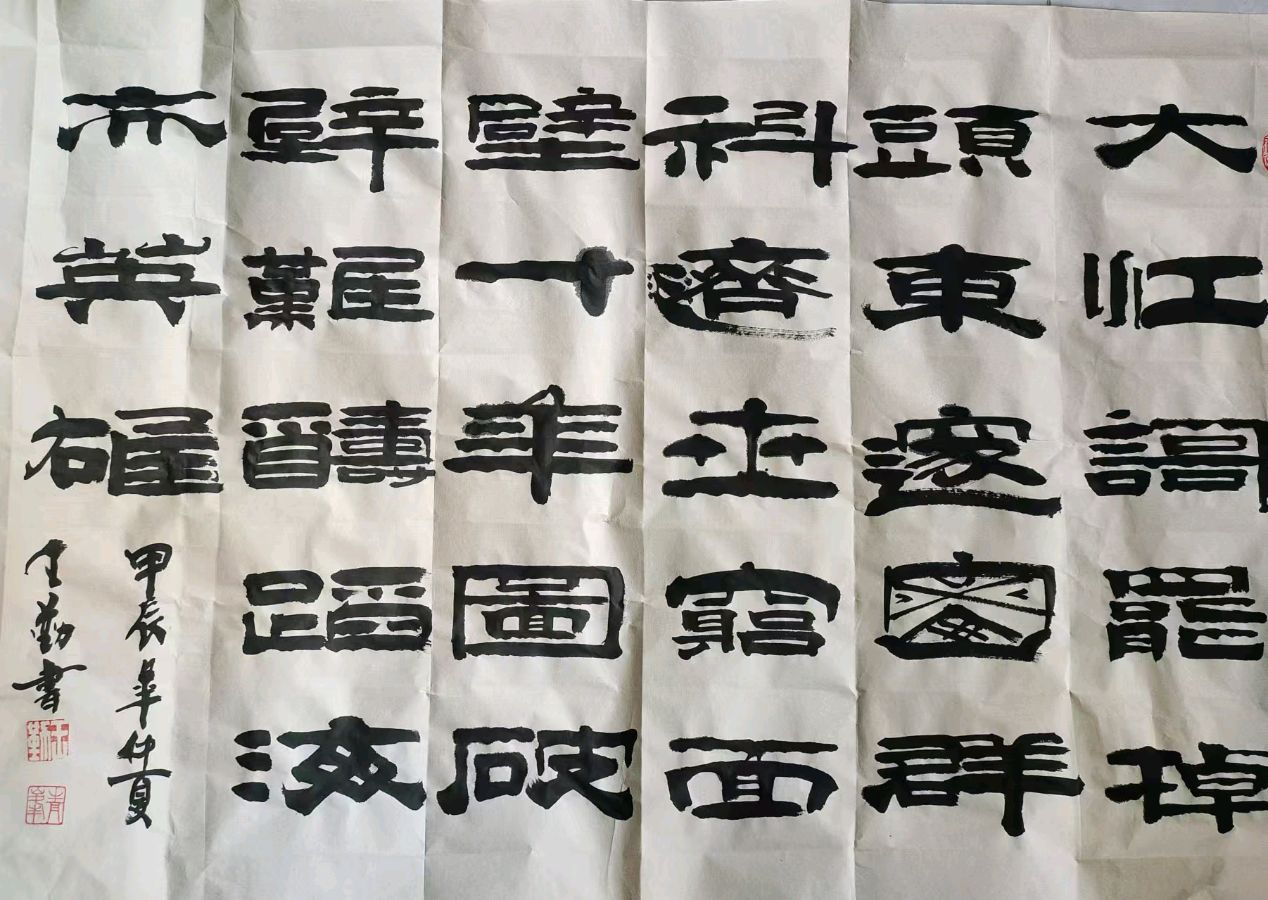 大江謌罷掉
頭東邃密群
科濟世窮面
壁十年圖破
壁難醻蹈海
亦英雄
甲辰年仲夏
勤書